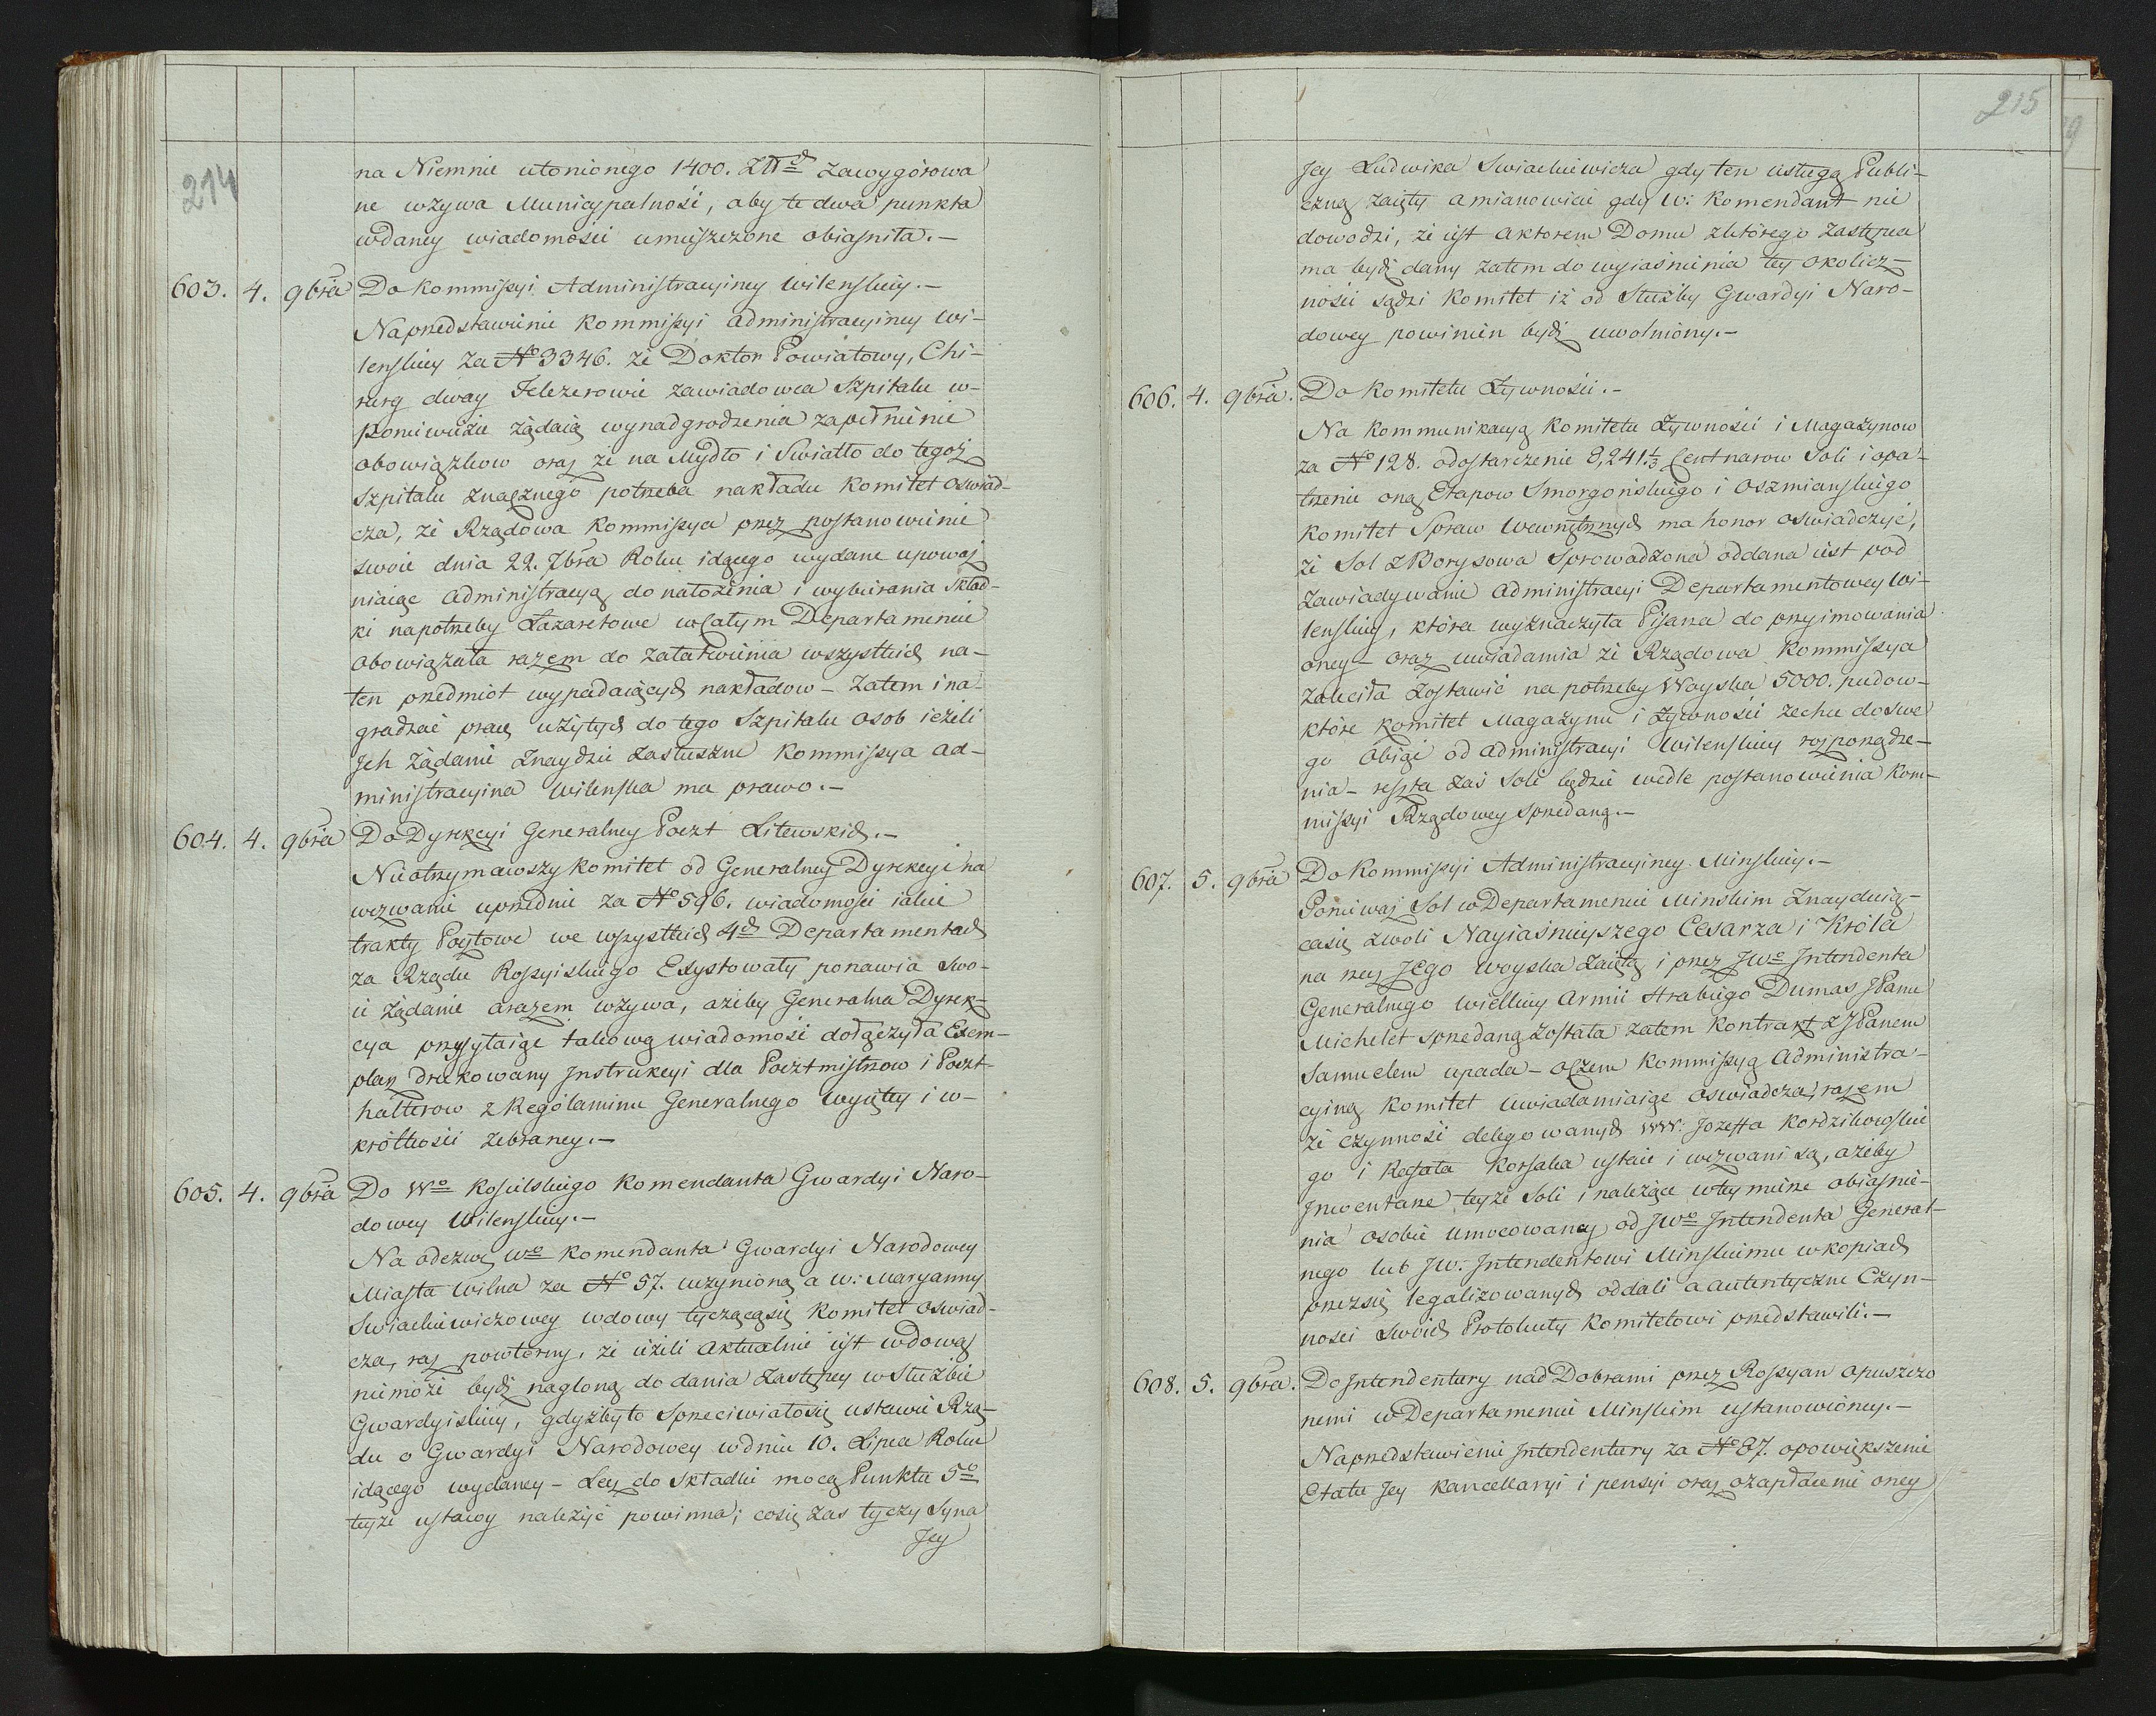 214
na Niemnie utonionego 1400. Złłch zawygórowa
ne wzywa Municypalność, aby te dwa punkta
wdaney wiadomości umieszczone obiaśniła.—
603. 4. 9bra Do Kommissyi Administracyiney Wilenskiey.—
Naprzedstawienie Kommissyi Administracyiney Wi-
lenskiey za No 3346. że Doktor Powiatowy, Chi-
rurg dway Felczerowie zawiadowca Szpitalu w-
Poniewieżu żądaią wynadgrodzenia zapełnienie
obowiązkow oraz że na Mydło i Swiatło do tegoż
Szpitalu znacznego potrzeba nakładu Komitet oswiad-
cza, że Rządowa Kommissya przez postanowienie
swoie dnia 22. 7bra Roku idącego wydane upoważ
niaiąc Administracyą do nałożenia i wybierania Skład-
ki napotrzeby Lazaretowe wcałym Departamencie
obowiązała razem do załatwienia wszystkich na-
ten przedmiot wypadaiących nakładow – Zatem i na-
gradzać pracę użytych do tego Szpitalu osob ieżeli
Jch żądanie znaydzie zasłuszne Kommissya Ad-
ministracyina Wilenska ma prawo.—
604. 4. 9bra Do Dyrekcyi Generalney Poczt Litewskich.—
Nieotrzymawszy Komitet od Generalney Dyrekcyi na
wezwanie uprzednie za No 596. wiadomości iakie
trakty Pocztowe we wszystkich 4ch Departamentach
za Rządu Rossyiskiego Exystowały ponawia swo-
ie żądanie arazem wzywa, ażeby Generalna Dyrek-
cya przysyłaiąc takową wiadomość dołączyła Exem-
plarz drukowany Jnstrukcyi dla Pocztmistrzow i Poczt-
halterow z Rególaminu Generalnego wyiętey i w-
krótkości zebraney.—
605. 4. 9bra Do Wo Kosielskiego Komendanta Gwardyi Naro-
dowey Wilenskiey.—
Na odezwę Wo Komendanta Gwardyi Narodowey
Miasta Wilna za No 57. uczynioną a W: Maryanny
Swiackiewiczowey wdowy tyczącąsię Komitet oswiad-
cza, raz powtorny, że ieżeli aktualnie iest wdową
niemoże bydź nagloną do dania zastępcy w Służbie
Gwardyiskiey, gdyżbyto Sprzeciwiałosię ustawie Rzą-
du o Gwardyi Narodowey wdniu 10. Lipca Roku
idącego wydaney – Lecz do Składki mocą Punktu 5o
teyże ustawy należyć powinna; cosię zas tyczy Syna
Jey
215
Jey Ludwika Swiackiewicza gdy ten usługą Publi-
czną zaięty amianowicie gdy W: Komendant nie
dowodzi, że iest aktorem Domu zktórego zastępca
ma bydź dany zatem do wyiaśnienia tey okolicz-
ności sądzi Komitet iż od Służby Gwardyi Naro-
dowey powinien bydź uwolniony.—
606. 4. 9bra. Do Komitetu Żywności.—
Na Kommunikacyą Komitetu Żywności i Magazynow
za No 128. odostarczenie 8,241⅓ Centnarow Soli i opa-
trzenie oną Etapow Smorgońskiego i Oszmianskiego
Komitet Spraw Wewnętrznych ma honor oswiadczyć,
że Sol z Borysowa Sprowadzona oddana iest pod
Zawiadywanie Administracyi Departamentowey Wi-
lenskiey, która wyznaczyła Pisarza do przyimowania
oney – oraz uwiadamia że Rządowa Kommissya
zaleciła zostawić na potrzeby Woyska 5000. pudow-
które Komitet Magazynu i Żywności zechce doswe
go obiąć od Administracyi Wilenskiey rozporządze-
nia – reszta zaś Soli będzie wedle postanowienia Kom-
missyi Rządowey sprzedaną.—
607. 5. 9bra Do Kommissyi Administracyiney Minskiey.—
Poniewaz Sol wDepartamencie Minskim znayduią-
casię zwoli Nayiaśnieyszego Cesarza i Króla
na rzecz Jego Woyska zaiętą i przez JWo Jntendenta
Generalnego wielkiey Armii Hrabiego Dumas JPanu
Michelet sprzedaną została zatem Kontrakt z JPanem
Samuelem upada – oczem Kommissyą Administra-
cyiną Komitet uwiadamiaiąc oswiadcza, razem
że czynność delegowanych WW: Jozeffa Kordzikowskie
go i Korsaka ustaie i wezwani są, ażeby
Jnwentarze teyże Soli i należące wtymierze obiaśnie-
nia osobie umocowaney od JWo Jntendenta General-
nego lub JW: Jntendentowi Minskiemu wkopiach
przezsię legalizowanych oddali a autentyczne Czyn-
ności Swoich Protokuły Komitetowi przedstawili.—
608. 5. 9bra. Do Jntendentury nad Dobrami przez Rossyan opuszczo
nemi wDepartamencie Minskim ustanowioney.—
Naprzedstawienie Jntendentury za No 87. opowiększenie
Etatu Jey Kancellaryi i pensyi oraz ozapłacenie oney